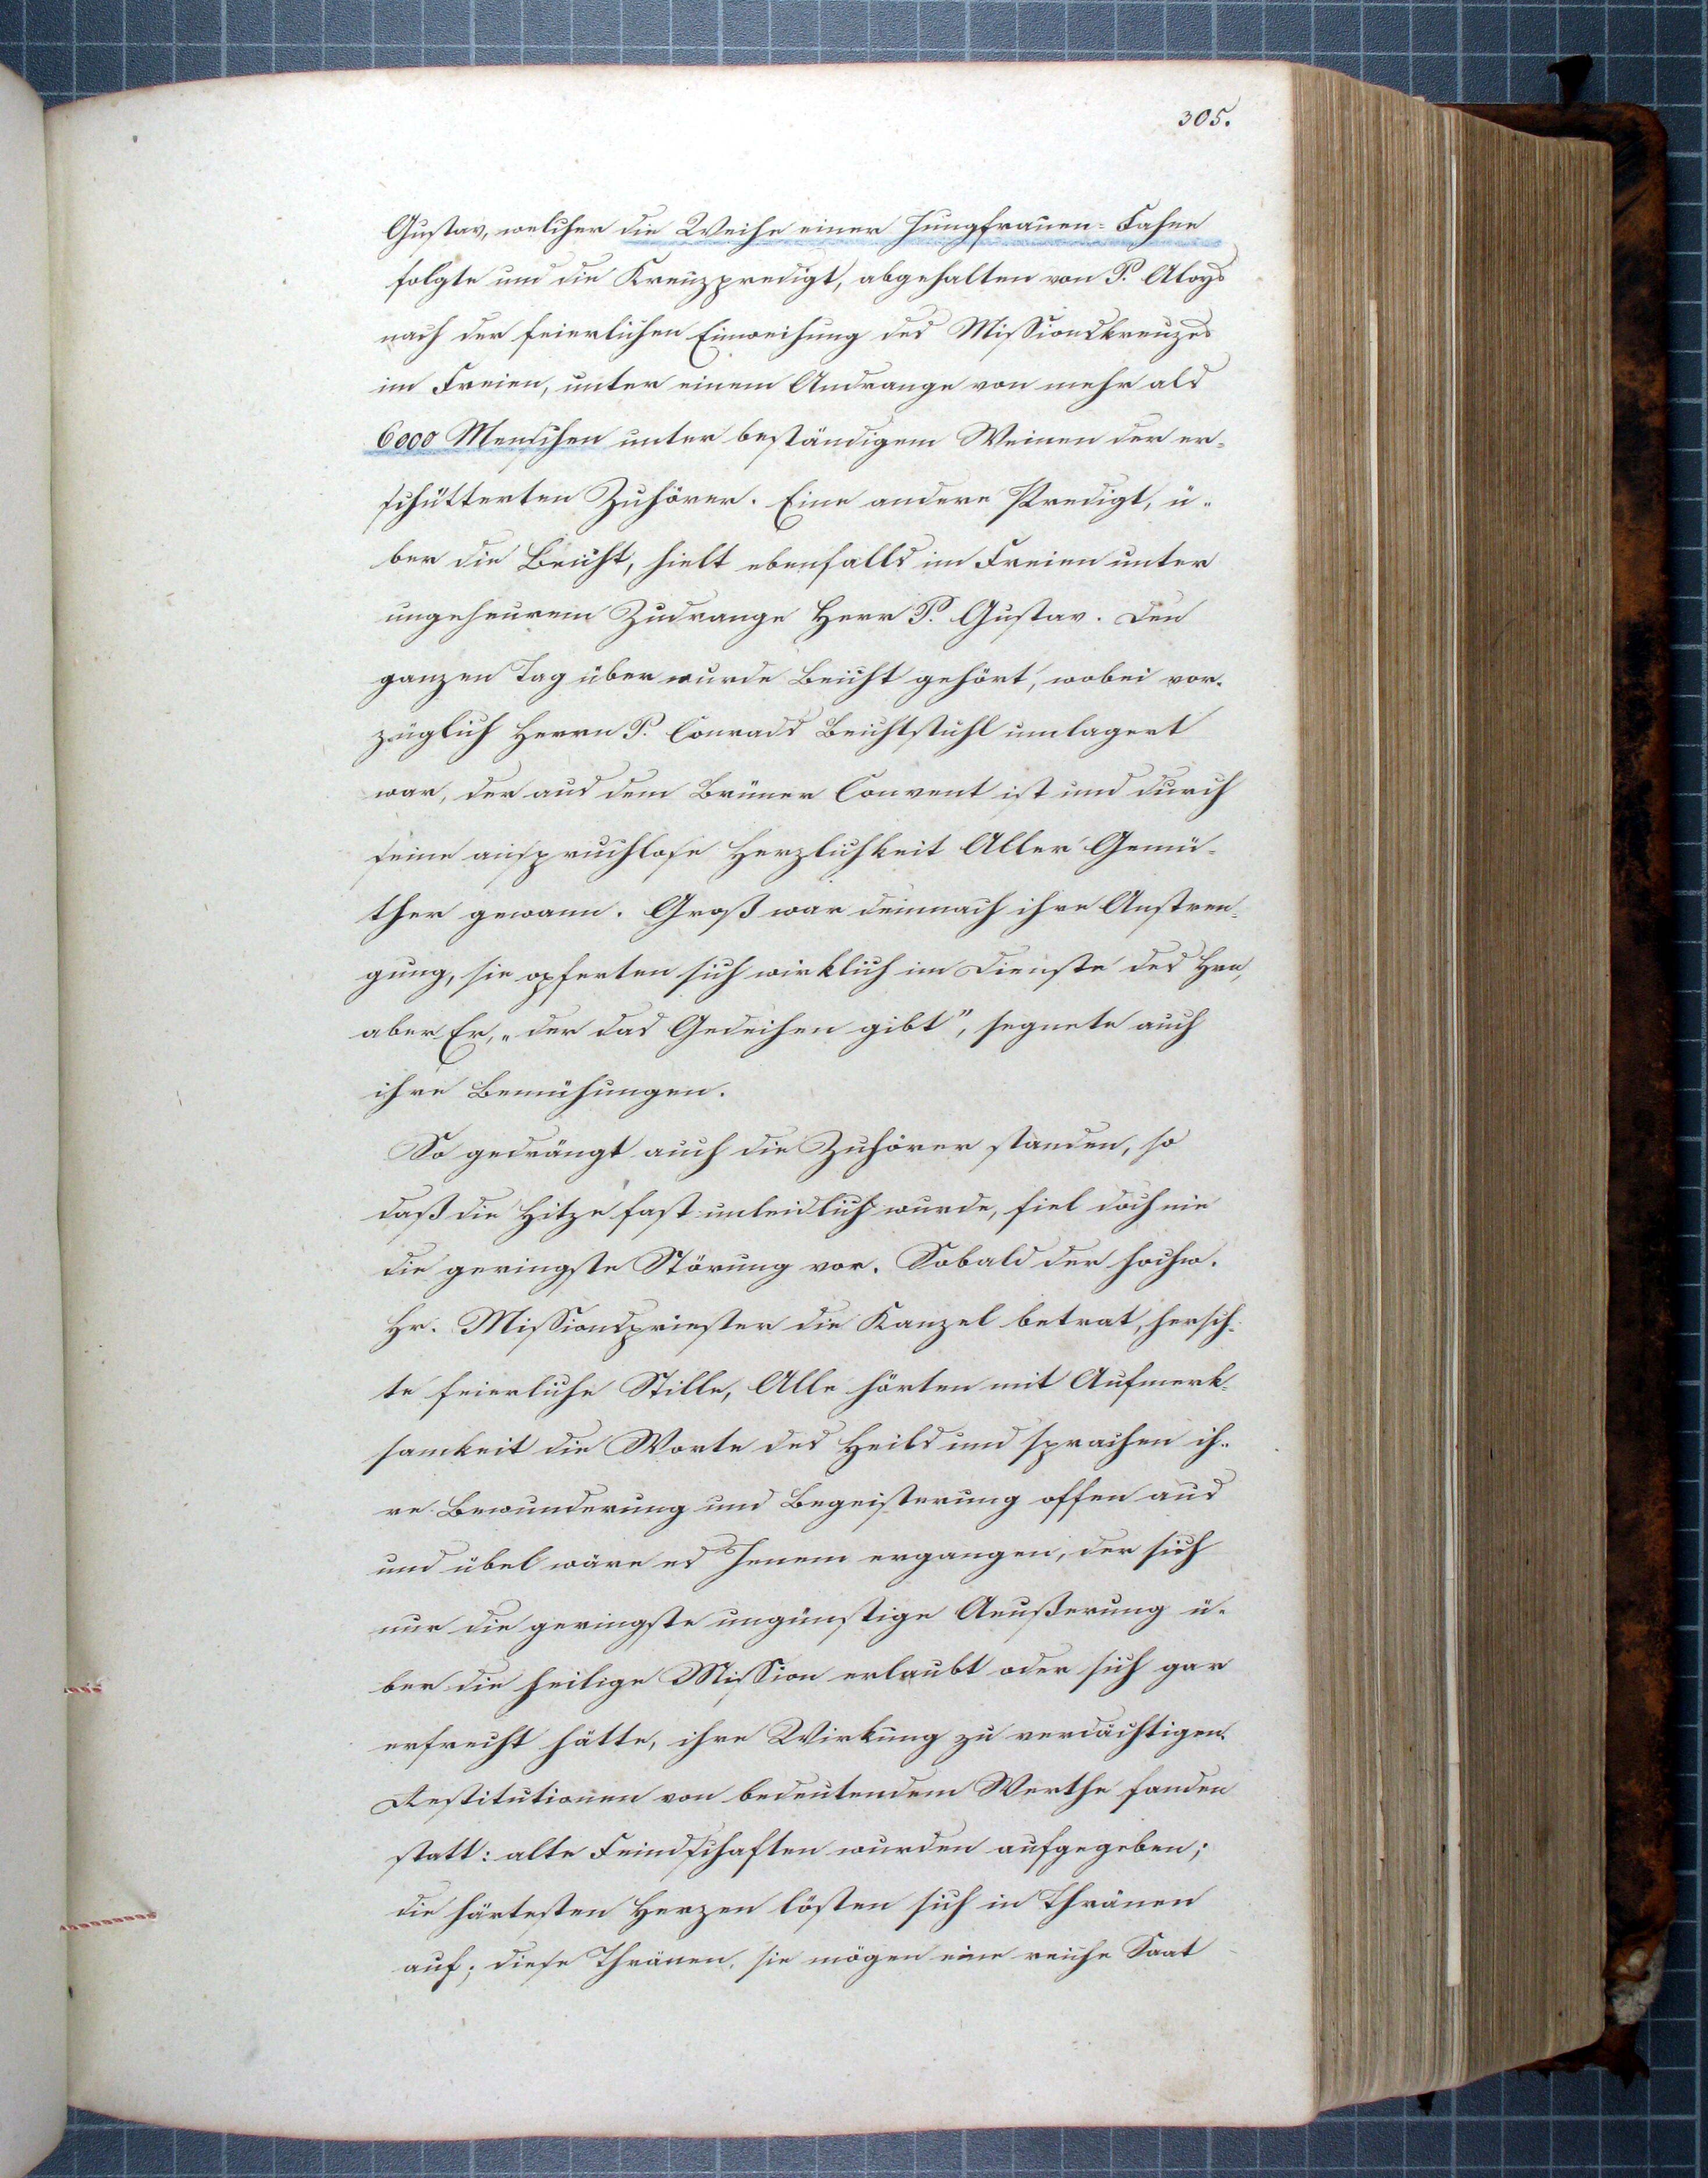 305.
Gustav, welcher die Weihe einer Jungfrauen-Fahne
folgte und die Kreuzpredigt, abgehalten von P. Aloys
nach der feierlichen Einweihung des Missionskreuzes
im Freien, unter einem Andrange von mehr als
6000 Menschen unter beständigem Weinen der er-
schütterten Zuhörer. Eine andere Predigt, ü-
ber die Beicht, hielt ebenfalls im Freien unter
ungeheurem Zudrange Herr P. Gustav. Den
ganzen Tag über wurde Beicht gehört, wobei vor-
züglich Herrn P. Conrads Beichtstuhl umlagert
war, der aus dem Brüner Convent ist und durch
seine anspruchlose Herzlichkeit Aller Gemü-
ther gewann. Groß war demnach ihre Anstren-
gung, sie opferten sich wirklich im Dienste des Hrn,
aber Er, „der das Gedeihen gibt", segnete auch
ihre Bemühungen.
So gedrängt auch die Zuhörer standen, so
daß die Hitze fast unleidlich wurde, fiel doch nie
die geringste Störung vor. Sobald der hochw.
Hr. Missionspriester die Kanzel betrat, hersch-
te feierliche Stille, Alle hörten mit Aufmerk-
samkeit die Worte des Heils und sprachen ih-
re Bewunderung und Begeisterung offen aus
und übel wäre es Jenem ergangen, der sich
nur die geringste ungünstige Aeußerung ü-
ber die heilige Mission erlaubt oder sich gar
erfrecht hätte, ihre Wirkung zu verdächtigen.
Restitutionen von bedeutendem Werthe fanden
statt: alte Feindschaften wurden aufgegeben;
die härtesten Herzen lösten sich in Thränen
auf; diese Thränen, sie mögen eine reiche Saat